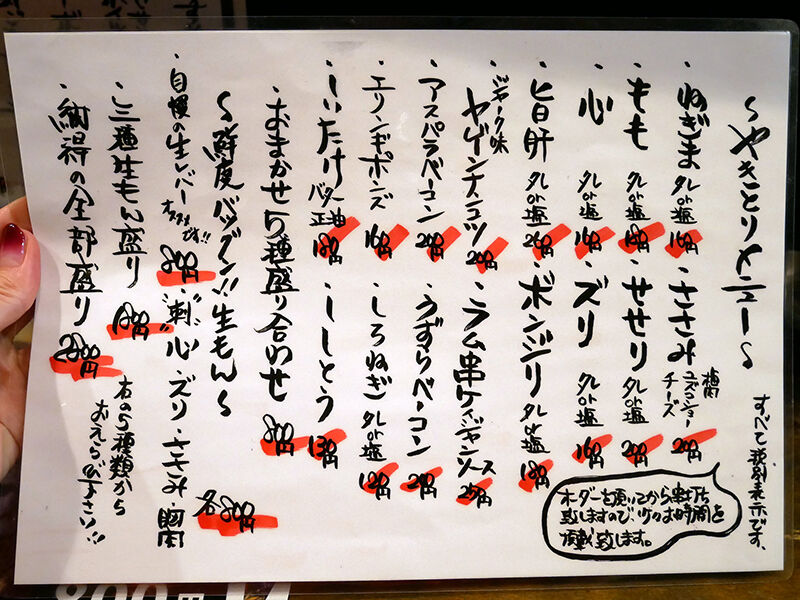 〜やきとりメニュー〜
すべて税別表示です。
・ねぎま タレor塩 160円
・ささみ 梅肉 ユズコショー チーズ 200円
・もも タレor塩 180円
・せせり タレor塩 200円
・心 タレor塩 160円
・ズリ タレor塩 160円
・旨肝 タレor塩 200円
・ボンジリ タレor塩 180円
ガーリック味
・ヤゲンナンコツ 200円
・ラム串ケイジャンソース 250円
・アスパラベーコン 200円
・うずらベーコン 200円
・エリンギポンズ 160円
・しろねぎ タレor塩 120円
・しいたけ バター正油 180円
・ししとう 130円
・おまかせ5種盛り合わせ 800円
〜鮮度バツグン!!生もん〜
・自慢の生レバー オススメです!! 800円
・"刺" 心・ズリ・ささみ・胸肉 各800円
・三種生もん盛り 1800円
右の5種類からおえらび下さい!!
・納得の全部盛り 2800円
オーダーを頂いてから串打ち
致しますので、少々お時間を
頂戴致します。